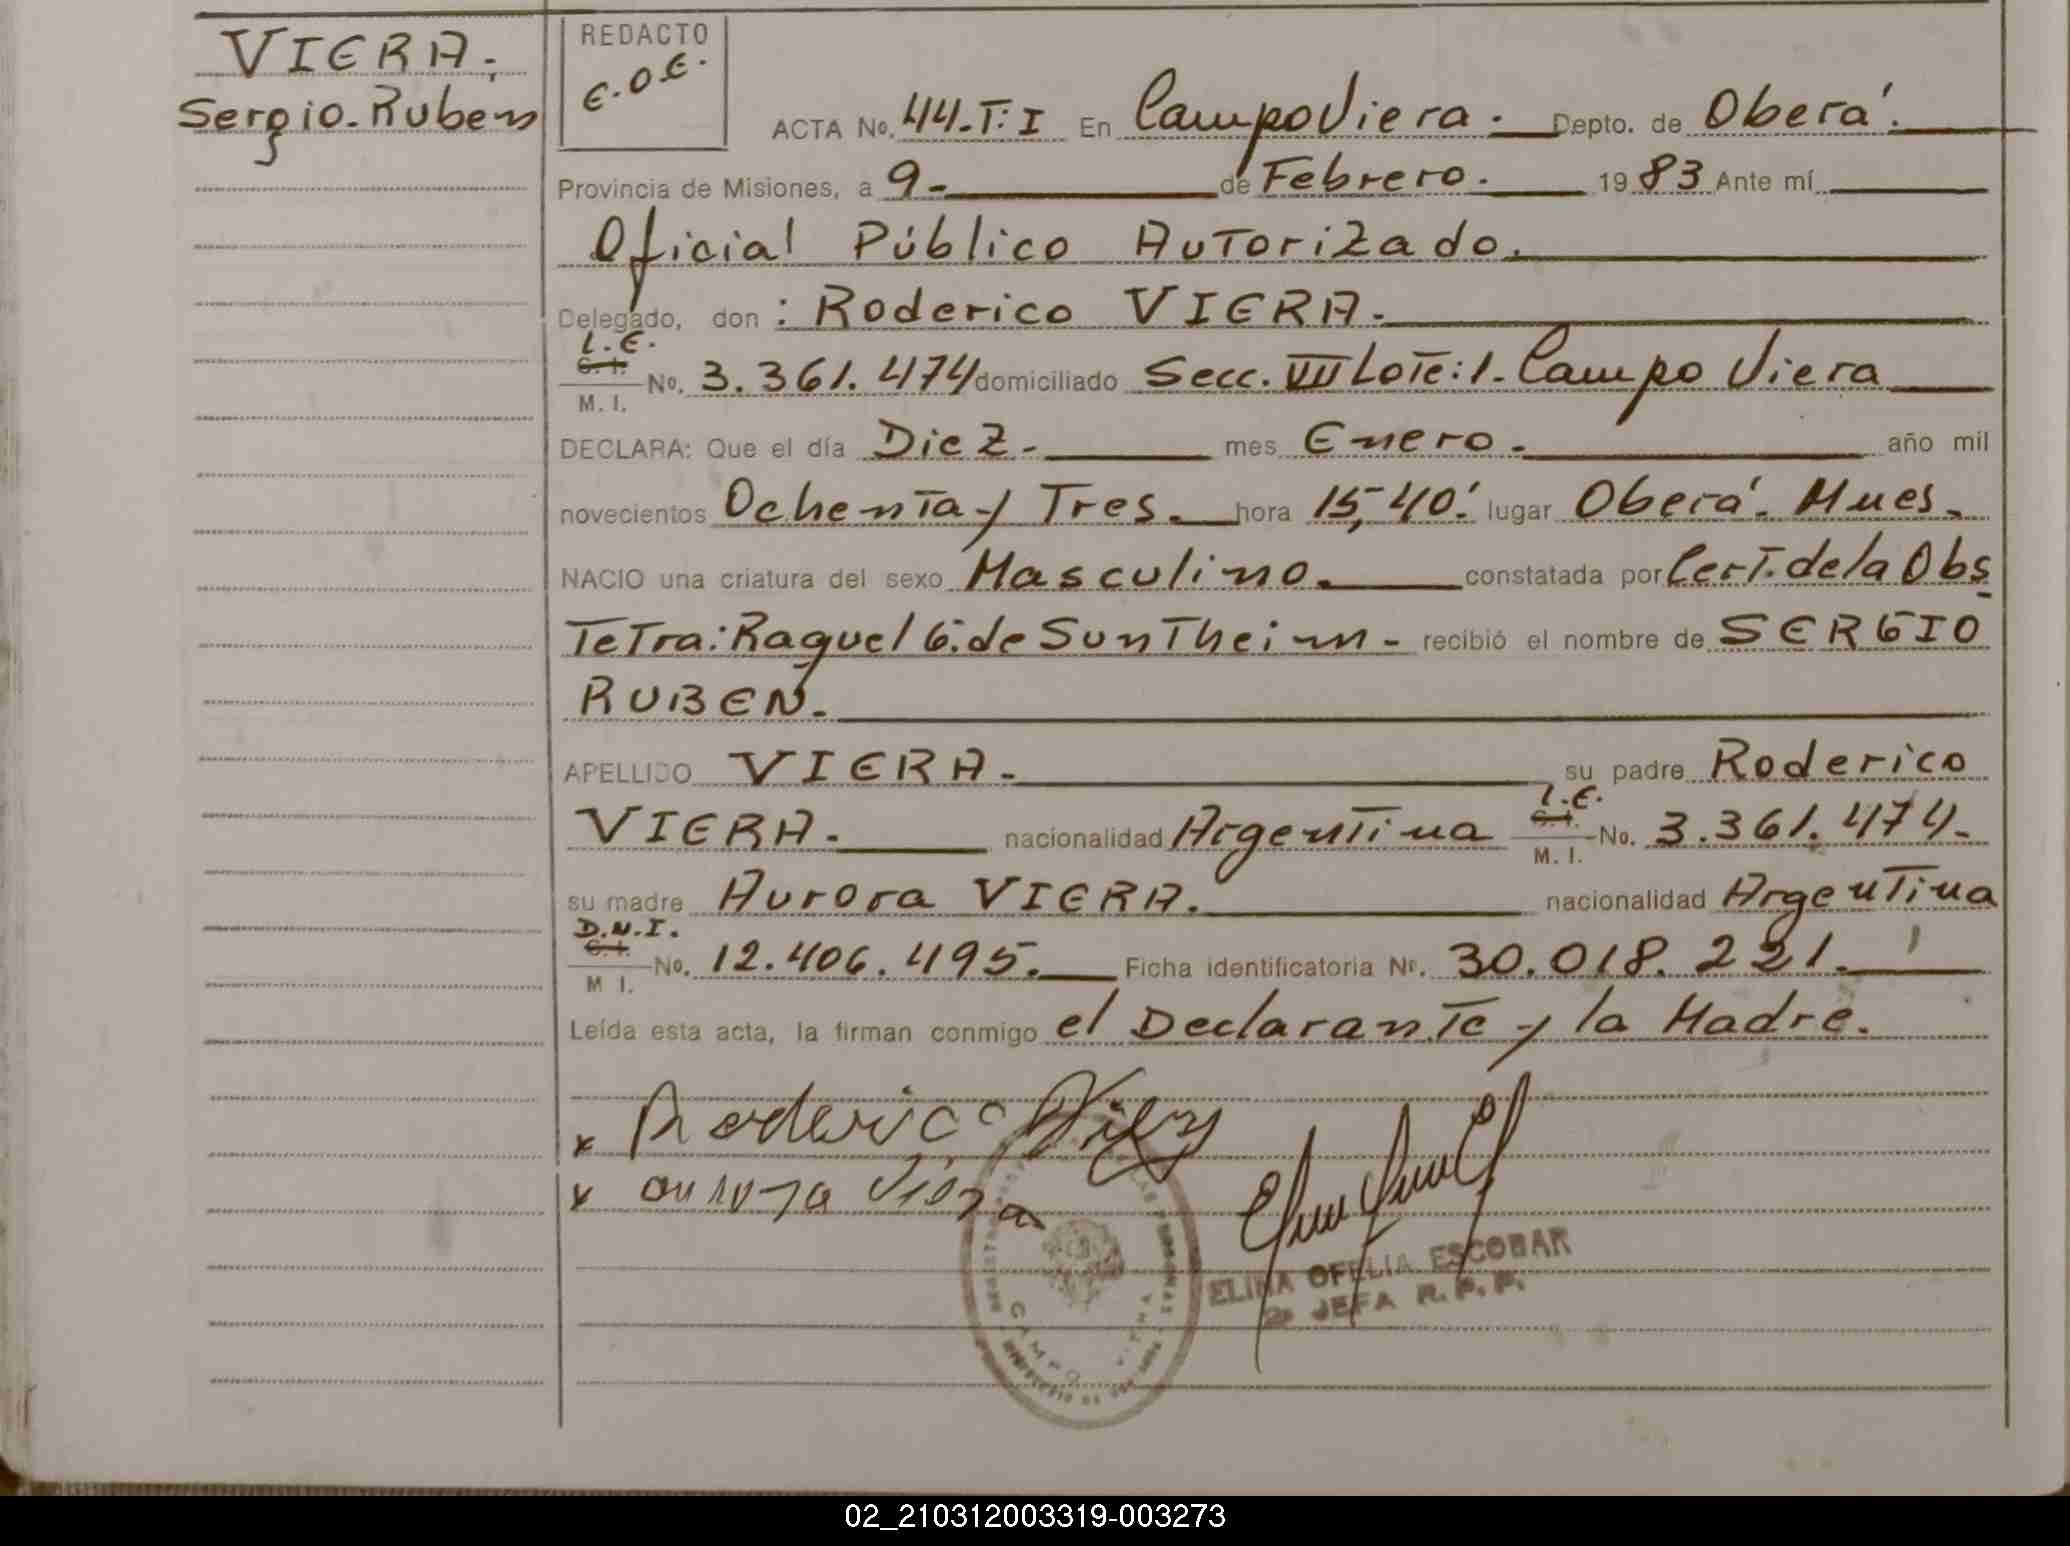 VIERA.
Sergio. Ruben
REDACTO
E.O.E.
ACTA No. 44-T:I En Campo Viera. Depto. de Oberá.
Provincia de Misiones, a 9- de Febrero. 1983 Ante mí
Oficial Público Autorizado.
Delegado, don: Roderico VIERA.
L.E.
C.I.
M. I. No. 3.361.474 domiciliado Secc. VII Lote: 1. Campo Viera
DECLARA: Que el día Diez. mes Enero. año mil
novecientos Ochenta y Tres. hora 15,40' lugar Oberá. Mnes.
NACIO una criatura del sexo Masculino. constatada por Cert. de la Obs
Tetra: Raquel G. de Suntheim - recibió el nombre de SERGIO
RUBEN.
APELLIDO VIERA. su padre Roderico
L.E.
C.I.
VIERA. nacionalidad Argentina M. I. No. 3.361.474.
su madre Aurora VIERA. nacionalidad Argentina
D.N.I.
C.I.
M I. No. 12.406.495. Ficha identificatoria Nº. 30.018.221.
Leída esta acta, la firman conmigo el Declarante y la Madre.
x Roderico Viera
x aurora Viera
ELINA OFELIA ESCOBAR
JEFA R.P.P.
CAMPO
02_210312003319-003273